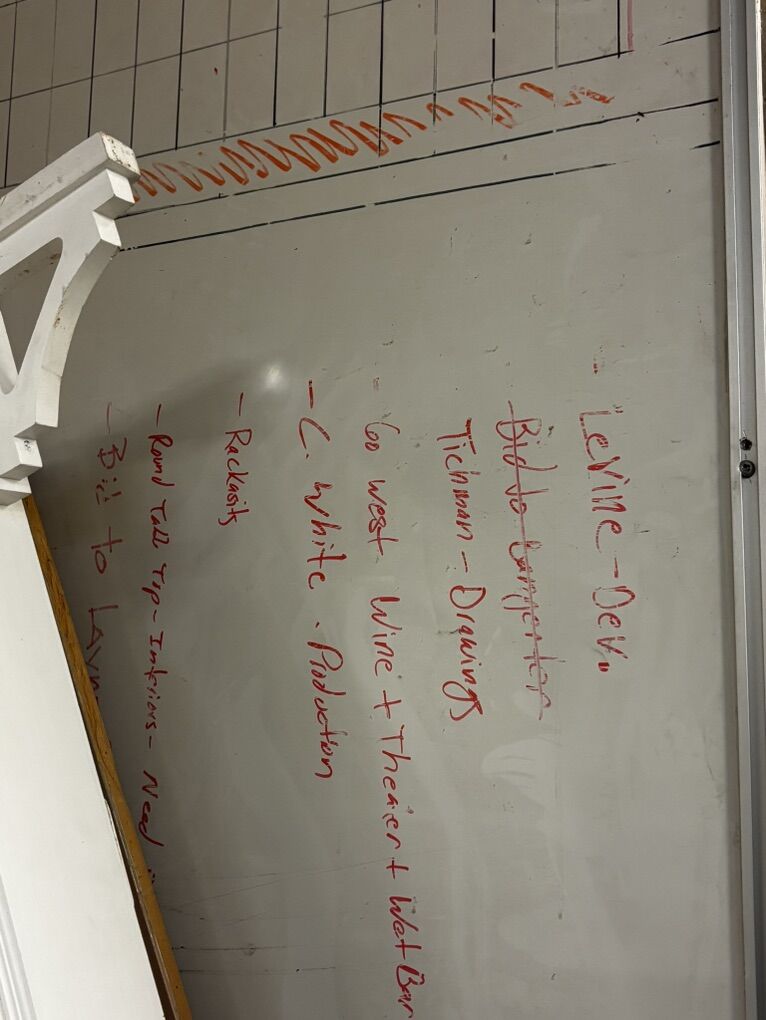 - LeVine - Dev.
- Bid to
Tichman - Drawings
- 600 west Wine + Theater + Wet Bar
- C. White - Production
- Rackasits
- Round Table Top - Interiors - Need
- Bill to